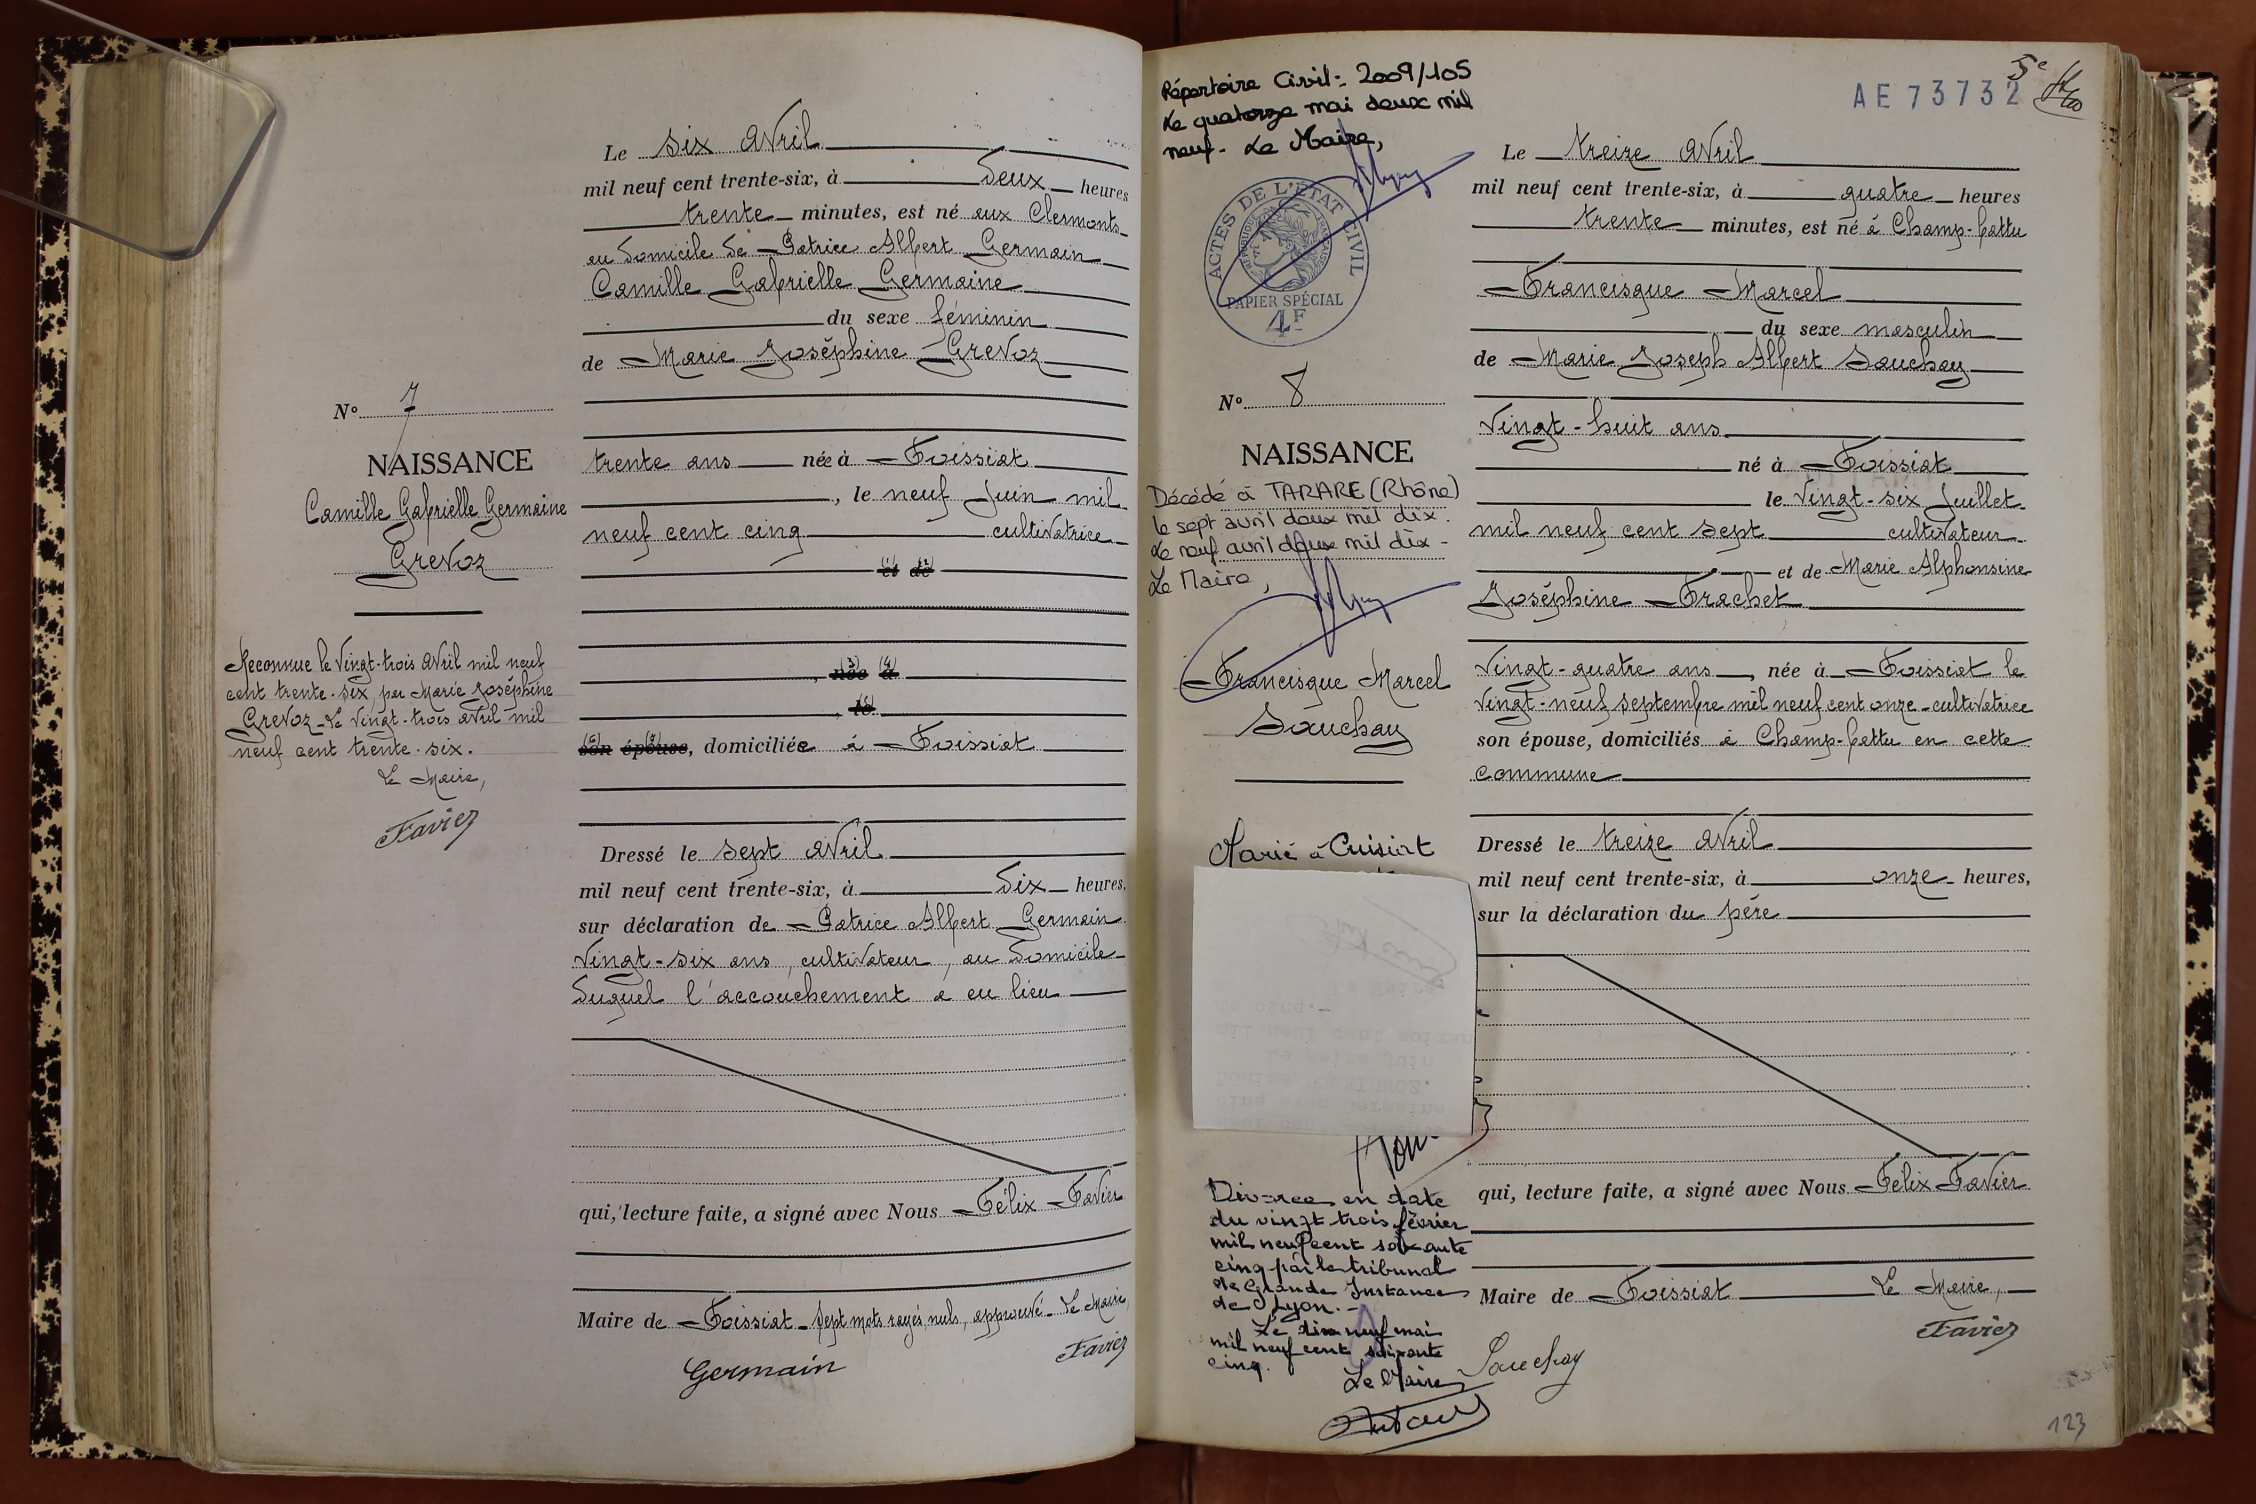 Le six avril
mil neuf cent trente-six, à deux heures
trente minutes, est né aux Clermonts
au domicile de Patrice Albert Germain
Camille Gabrielle Germaine
du sexe féminin
de Marie Joséphine Grevoz
N° 7
NAISSANCE
Camille Gabrielle Germaine
Grevoz
trente ans née à Foissiat
, le neuf Juin mil
neuf cent cinq cultivatrice
(1) et (2) de
, (3) née (4) à
, le
son épouse, domiciliée à Foissiat
Reconnue le vingt-trois avril mil neuf
cent trente-six, par Marie Joséphine
Grevoz - Le vingt-trois avril mil
neuf cent trente-six.
Le Maire,
Favier
Dressé le sept avril
mil neuf cent trente-six, à dix heures,
sur déclaration de Patrice Albert Germain
vingt-six ans, cultivateur, au domicile
duquel l'accouchement a eu lieu
qui, lecture faite, a signé avec Nous Félix Favier
Maire de Foissiat - sept mots rayés nuls, approuvé - Le Maire,
Germain
Favier
Répertoire Civil : 2009/105
Le quatorze mai deux mil
neuf - Le Maire,
ACTES DE L'ÉTAT CIVIL
RÉPUBLIQUE FRANÇAISE
PAPIER SPÉCIAL
4F
AE 73732
5e
Le treize avril
mil neuf cent trente-six, à quatre heures
trente minutes, est né à Champ-battu
Francisque Marcel
du sexe masculin
de Marie Joseph Albert Souchay
N° 8
NAISSANCE
Décédé à TARARE (Rhône)
le sept avril deux mil dix.
Le neuf avril deux mil dix -
Le Maire,
Francisque Marcel
Souchay
vingt-huit ans
né à Foissiat
le vingt-six Juillet
mil neuf cent sept cultivateur
et de Marie Alphonsine
Joséphine Frachet
vingt-quatre ans, née à Foissiat le
vingt-neuf septembre mil neuf cent onze - cultivatrice
son épouse, domiciliés à Champ-battu en cette
commune
Marié à Cuisiat
Dressé le treize avril
mil neuf cent trente-six, à onze heures,
sur la déclaration du père
qui, lecture faite, a signé avec Nous Félix Favier
Maire de Foissiat Le Maire,
Favier
Souchay
Divorce en date
du vingt trois février
mil neuf cent soixante
cinq par le tribunal
de Grande Instance
de Lyon. -
Le dix neuf mai
mil neuf cent soixante
cinq.
Le Maire
123